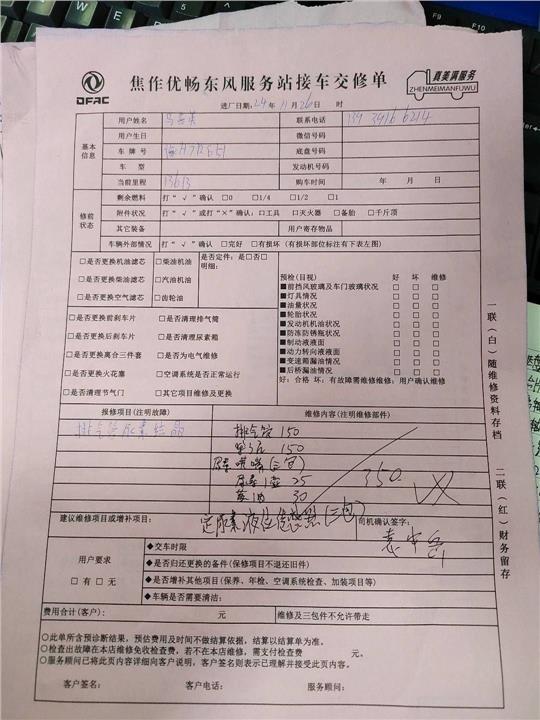 DFAC
焦作优畅东风服务站接车交修单
真美满服务
ZHENMEIMANFUWU
进厂日期: 24年 11月26日 时
基本信息
用户姓名 联系电话 139 3916 6214
用户生日 微信号码
车牌号 底盘号码
车型 发动机号码
当前里程 13613 购车时间 年 月 日
修前状态
剩余燃料 打“√”确认 □0 □1/4 □1/2 □1
附件状况 打“√”或打“×”确认: □工具 □灭火器 □备胎 □千斤顶
其它装备 用户寄存物品
车辆外部情况 打“√”确认 □完好 □有损坏(有损坏部位标注有下表左图)
□是否更换机油滤芯 □柴油机油 是否定件: 是□否□
□是否更换柴油滤芯 □汽油机油 明细:
□是否更换空气滤芯 □齿轮油
□是否更换前刹车片 □是否清理排气筒
□是否更换后刹车片 □是否清理尿素箱
□是否更换离合三件套 □是否为电气维修
□是否更换火花塞 □空调系统是否正常运行
□是否清理节气门 □其它项目维修及更换
预检(目视) 好 坏 维修
■前挡风玻璃及车门玻璃状况 □ □ □
■灯具情况 □ □ □
■油量状况 □ □ □
■轮胎状况 □ □ □
■发动机机油状况 □ □ □
■防冻防锈瓶状况 □ □ □
■制动液液面 □ □ □
■动力转向液液面 □ □ □
■变速箱漏油情况 □ □ □
■后桥漏油情况 □ □ □
好: 合格 坏: 有故障需维修维修: 用户确认维修
报修项目(注明故障) 维修内容(注明维修部件)
排气管尿素结晶
排气管 150
150
尿素喷嘴(三包)
尿素1壶 25
30
350
建议维修项目或增补项目:
定尿素液位传感器(三包)
司机确认签字:
用户要求
□有 □无
◆交车时限
◆是否归还更换的备件(保修项目不退还旧件)
◆是否增补其他项目(保养、年检、空调系统检查、加装项目等)
◆车辆是否需要清洁:
费用合计(客户): 元 维修及三包件不允许带走
○此单所含预诊断结果,预估费用及时间不做结算依据,结算以结算单为准。
○检查出故障在本店维修免收检查费,若不在本店维修,需支付检查费 元。
○服务顾问已将此页内容详细向客户说明,客户签名则表示已理解并接受此页内容。
客户签名: 客户电话: 服务顾问:
一联(白)随维修资料存档
二联(红)财务留存